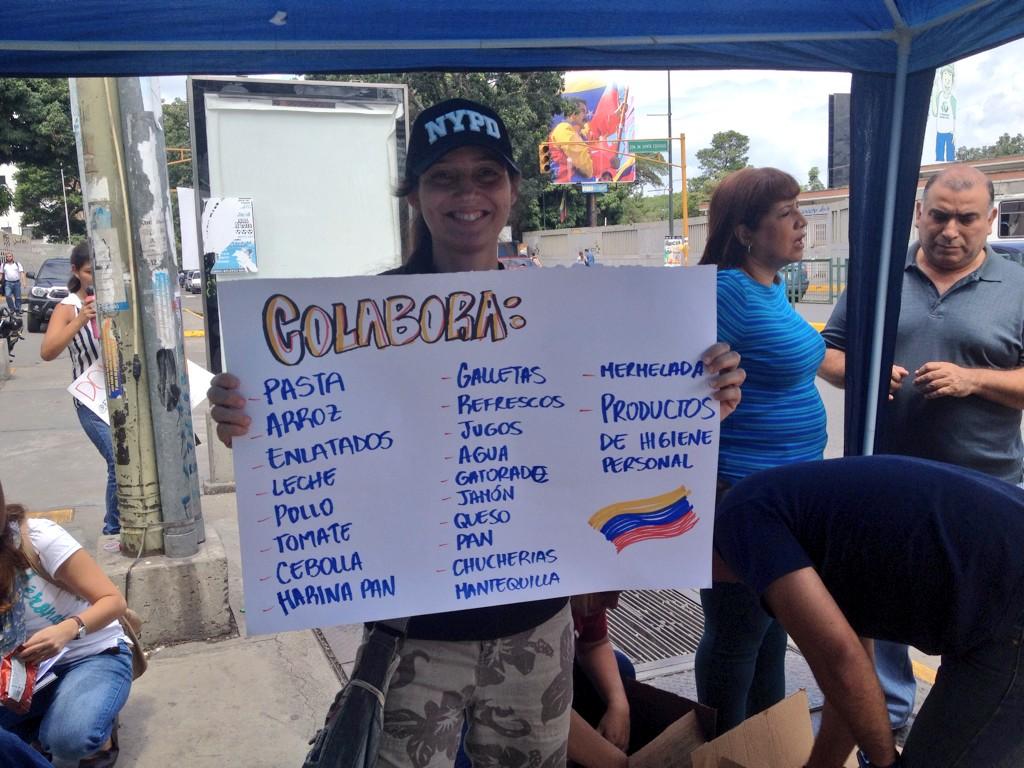 NYPD
COLABORA:
- PASTA
- ARROZ
- ENLATADOS
- LECHE
- POLLO
- TOMATE
- CEBOLLA
- HARINA PAN
- GALLETAS
- REFRESCOS
- JUGOS
- AGUA
- GATORADE
- JAMÓN
- QUESO
- PAN
- CHUCHERIAS
- MANTEQUILLA
- MERMELADA
- PRODUCTOS
DE HIGIENE
PERSONAL